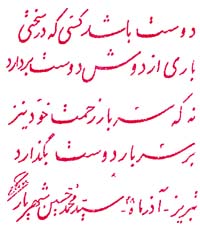 دوست باشد کسی که در سختی
باری از دوش دوست بردارد
نه که سربار زحمت خود نیز
بر سر بار دوست بگذارد
تبریز - آذرماه ۴۵ - سید محمد حسین شهریار